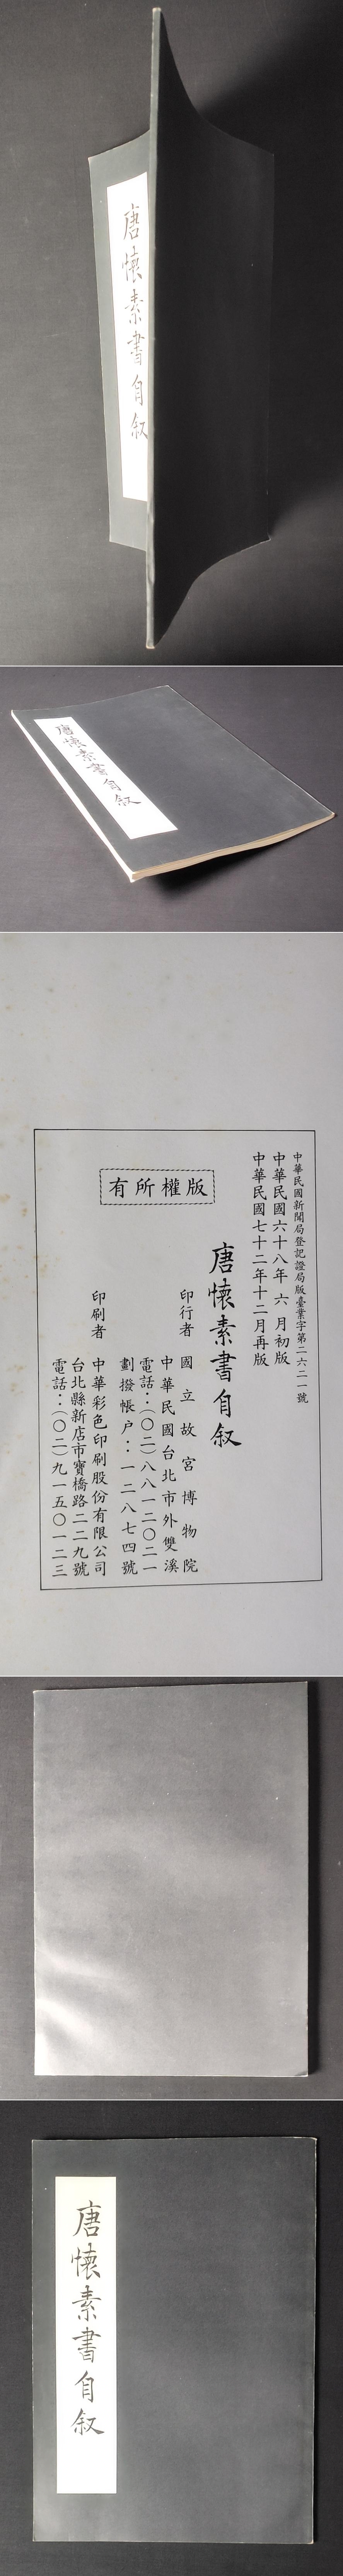 唐懷素書自叙
唐懷素書自叙
中華民國新聞局登記證局版臺業字第二六二一號
中華民國六十八年 六 月初版
中華民國七十二年十二月再版
唐懷素書自叙
版權所有
印行者 國立故宮博物院
中華民國台北市外雙溪
電話：（〇二）八八一二〇二一
劃撥帳户：一二八七四號
印刷者 中華彩色印刷股份有限公司
台北縣新店市寶橋路二二九號
電話：（〇二）九一五〇一二三
唐懷素書自叙